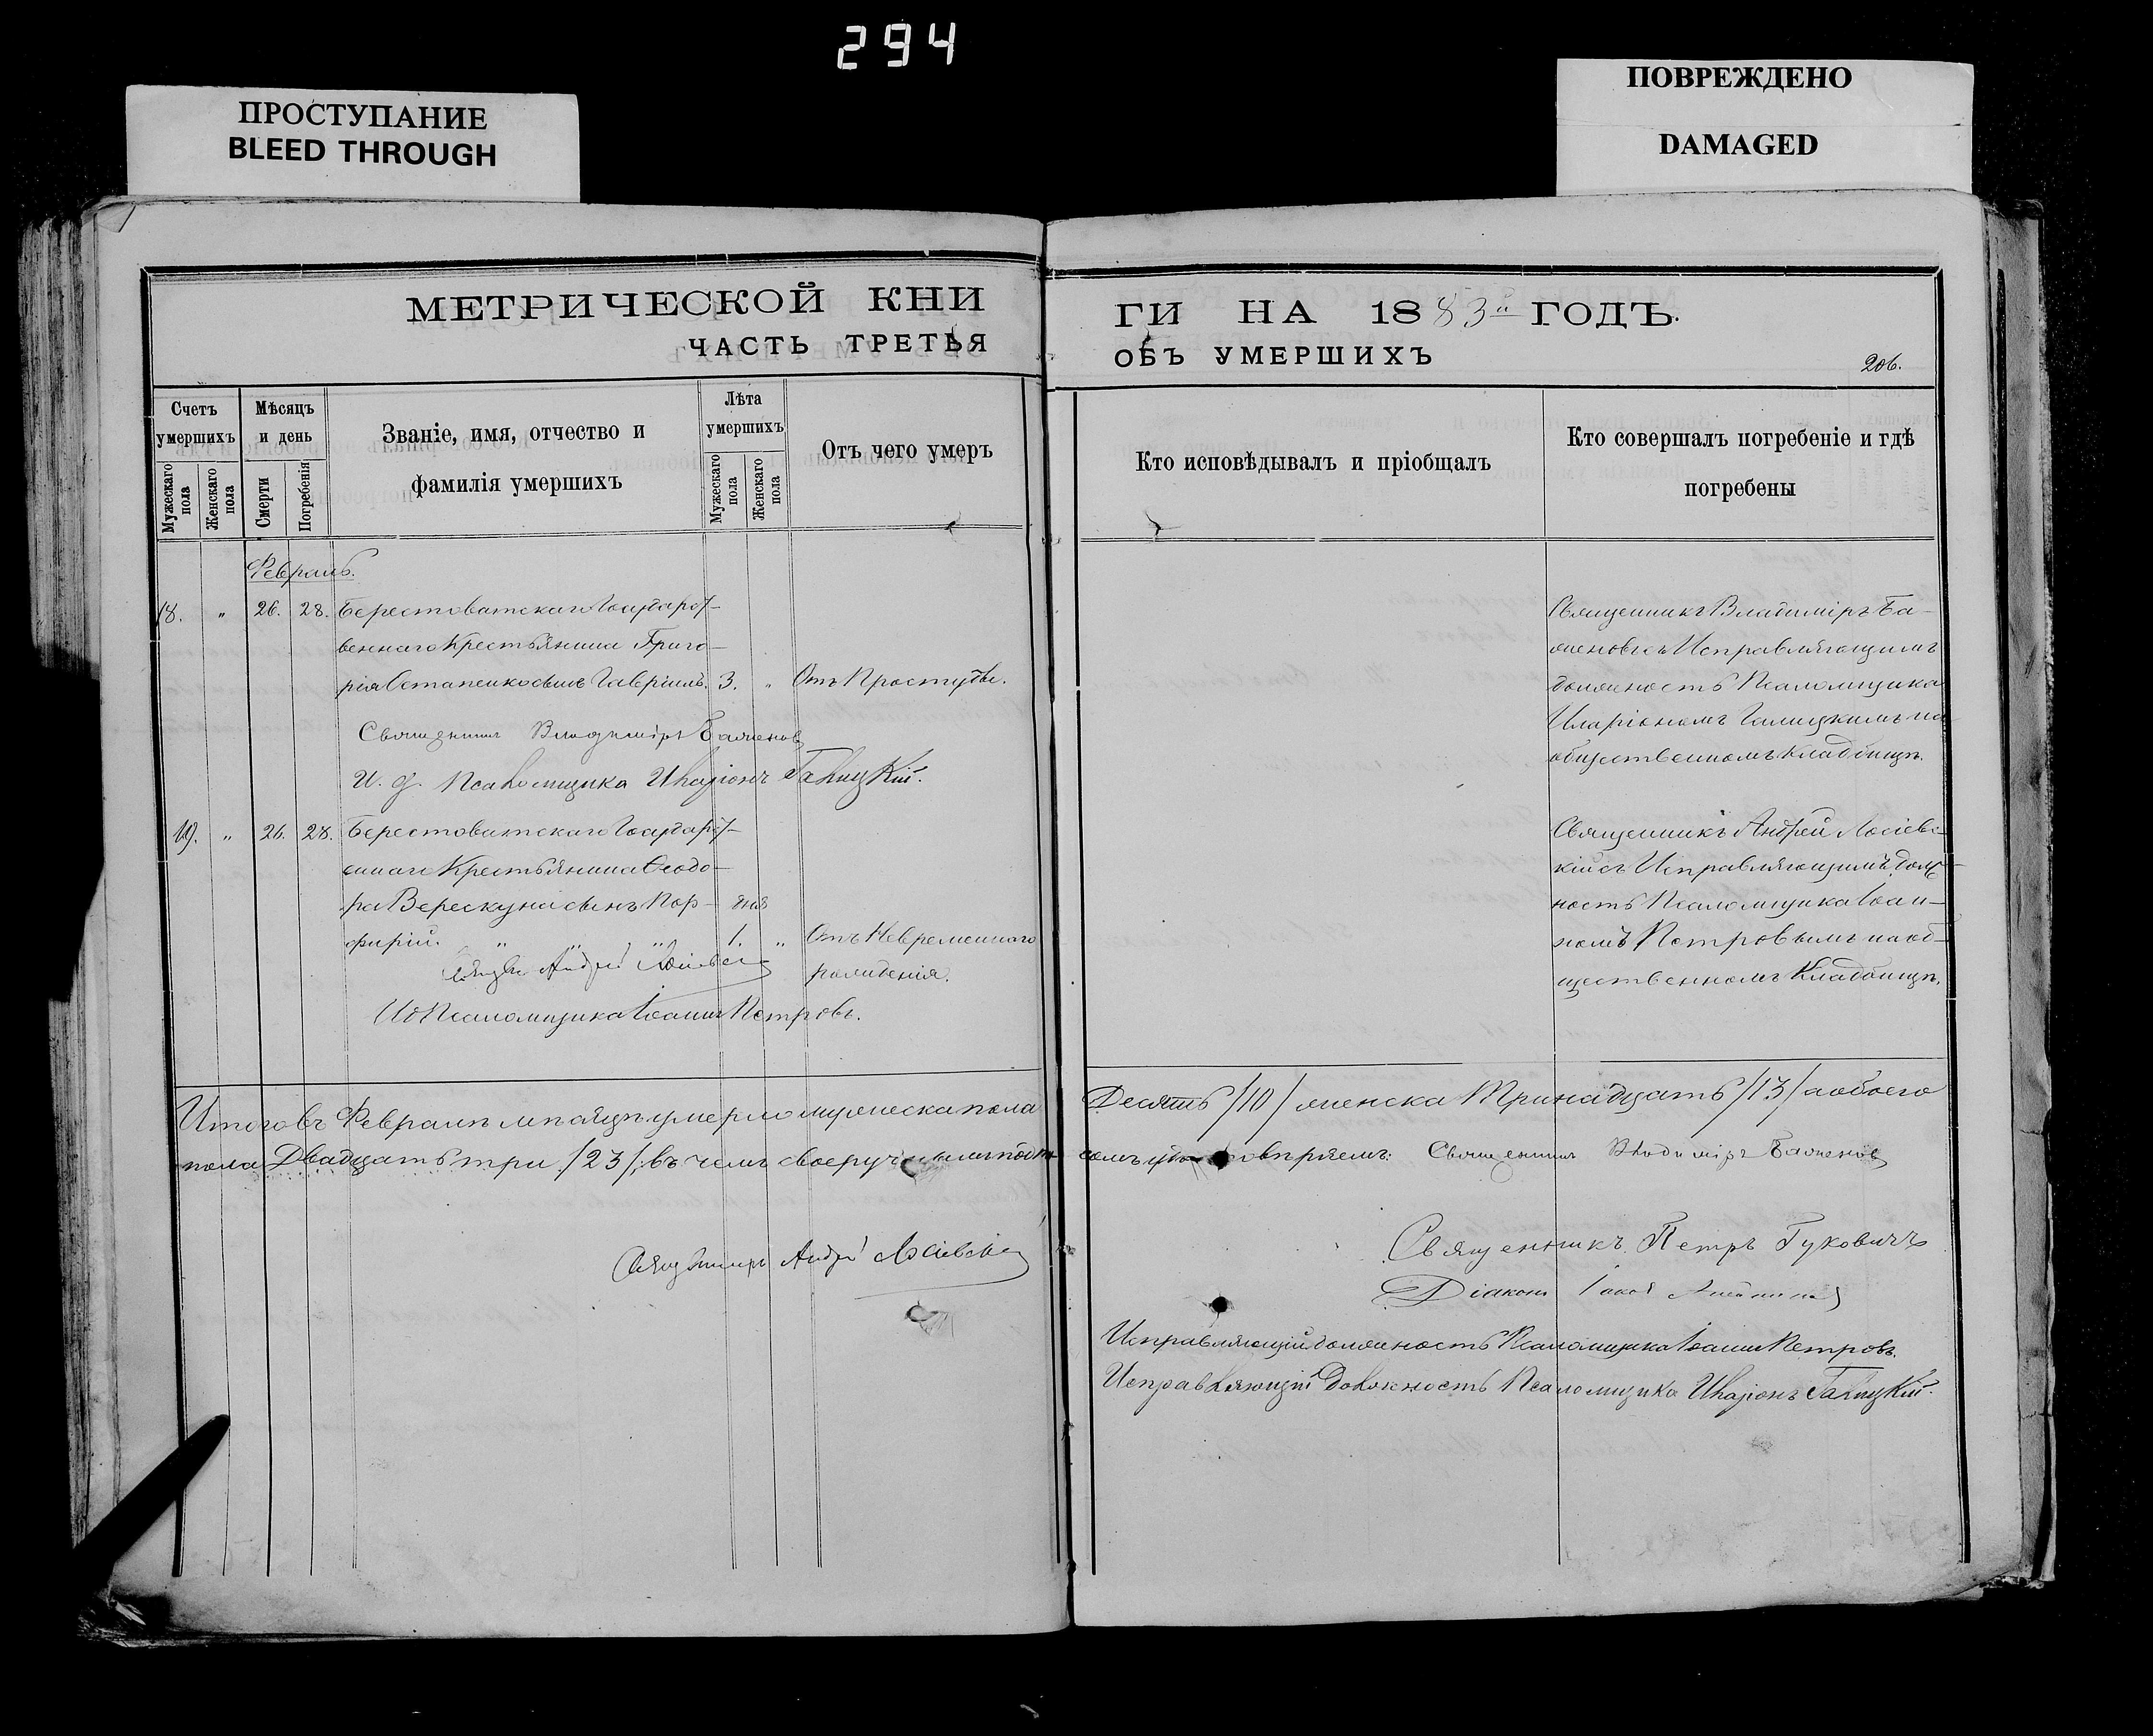 294
ПРОСТУПАНИЕ
BLEED THROUGH
ПОВРЕЖДЕНО
DAMAGED
МЕТРИЧЕСКОЙ КНИ
ЧАСТЬ ТРЕТЬЯ
ГИ НА 1883й ГОДЪ.
ОБЪ УМЕРШИХЪ
206.
Счетъ умершихъ
Мужескаго пола
Женскаго пола
Мѣсяцъ и день
Смерти
Погребенія
Званіе, имя, отчество и
фамилія умершихъ
Лѣта умершихъ
Мужескаго пола
Женскаго пола
Отъ чего умеръ
Кто исповѣдывалъ и пріобщалъ
Кто совершалъ погребеніе и гдѣ
погребены
Февраль.
18. " 26. 28. Берестоватскаго Государст-
веннаго Крестьянина Григо-
рія Остапенко сынъ Гавріилъ. 3. " Отъ Простуды.
Священникъ Владиміръ Баженовъ
И. д. Псаломщика Иларіонъ Галицкій.
Священникъ Владиміръ Ба-
женовъ съ Исправляющимъ
должность Псаломщика
Иларіономъ Галицкимъ на
общественномъ кладбищѣ.
19. " 26. 28. Берестоватскаго Государст-
еннаго Крестьянина Ѳеодо-
ра Верескуна сынъ Пор- дня
фирій. " " " 1. " Отъ Невременнаго
рожденія.
Андрей
Ид Псаломщика Іоаннъ Петровъ.
Священникъ Андрей Лосіевс-
кій съ Исправляющимъ долж-
ность Псаломщика Іоан-
номъ Петровымъ на об-
щественномъ Кладбищѣ.
Итого въ Февралѣ мѣсяцѣ умерло мужеска пола Десять /10/ женска Тринадцать /13/ а обоего
пола Двадцать три /23/; въ чемъ своеручнымъ подпи Священникъ Владиміръ Баженовъ
Священникъ Андрей Лосіевскій
Священникъ Петръ Гуковичъ
Діаконъ
Исправляющій должность Псаломщика Іоаннъ Петровъ.
Исправляющій Должность Псаломщика Иларіонъ Галицкій.